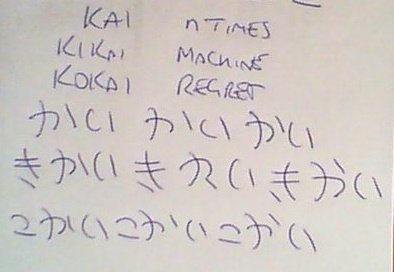 KAI n TIMES
KIKAI MACHINE
KOKAI REGRET
かい かい かい
きかい きかい きかい
こかい こかい こかい